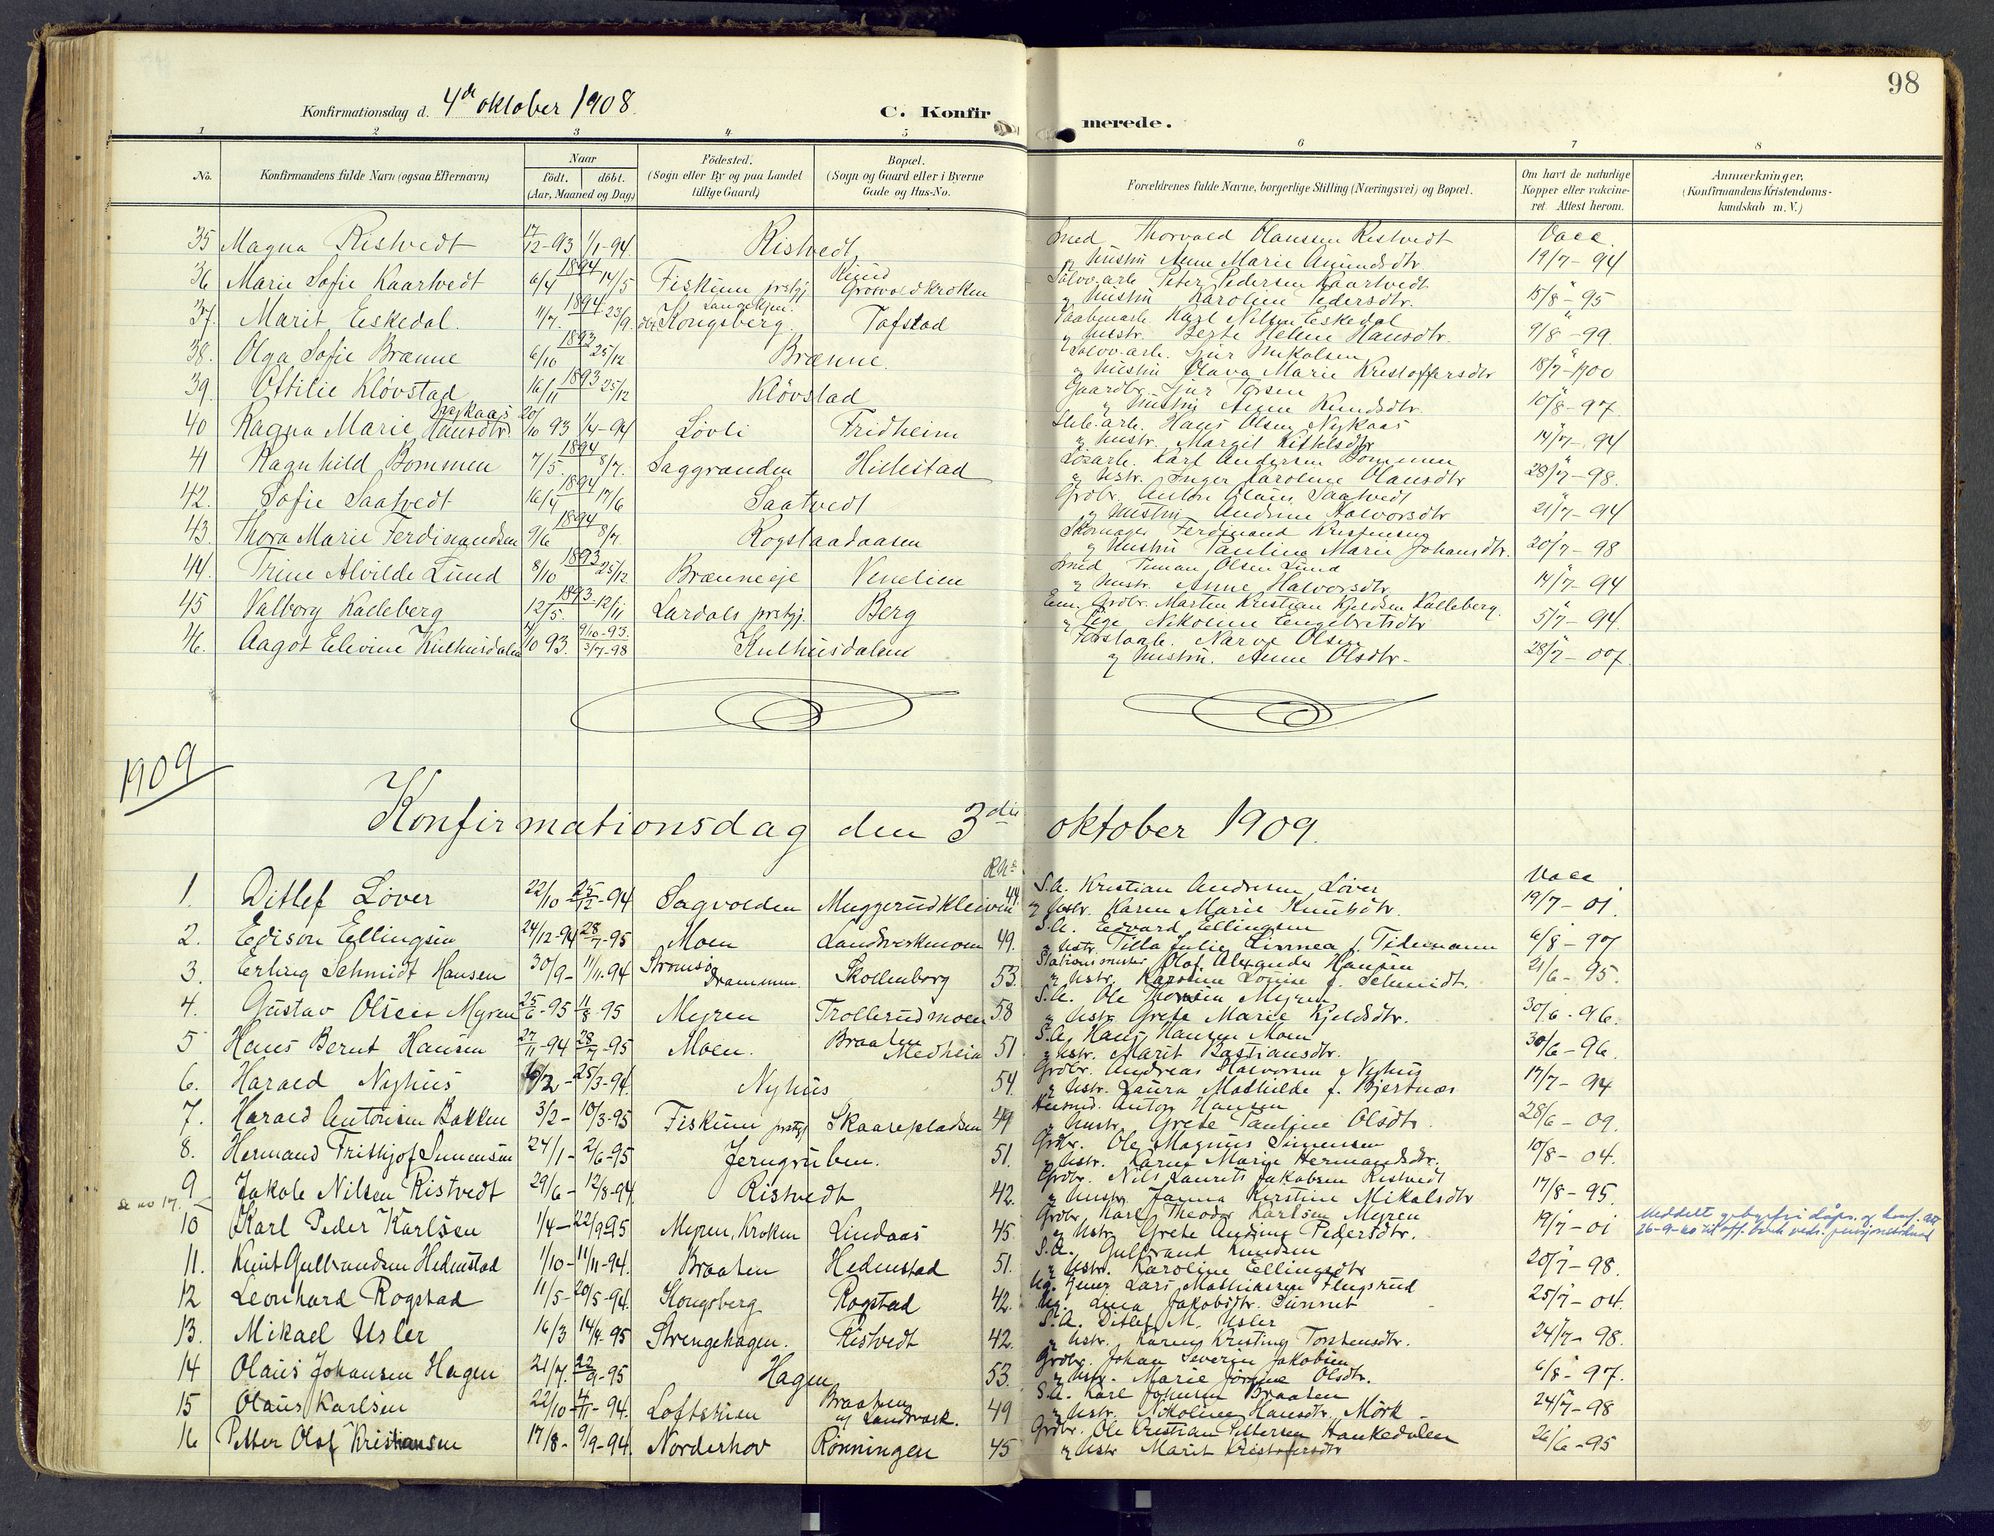 98
Konfirmationsdag d. 4de oktober 1908.
C. Konfirmerede.
1 2 3 4 5 6 7 8
No. Konfirmandens fulde Navn (ogsaa Efternavn) Naar født. døbt. (Aar, Maaned og Dag) Födested. (Sogn eller By og paa Landet tillige Gaard) Bopæl. (Sogn og Gaard eller i Byerne Gade og Hus-No. Forældrenes fulde Navne, borgerlige Stilling (Næringsvei) og Bopæl. Om havt de naturlige Kopper eller vakcineret. Attest herom. Anmærkninger. (Konfirmandens Kristendomskundskab m. V.)
35 Magna Ristvedt 17/12-93 1/1-94 Ristvedt Smed Thorvald Olaussen Ristvedt Vacc.
og Hustru Anne Marie Amundsdtr 19/7-94
36 Marie Sofie Kaartvedt 6/4 1894 14/5 Fiskum prstgj. Grosvoldkroken Sølvv.arb. Peter Pedersen Kaartvedt
og Hustru Karoline Pedersdtr. 15/8-95
37. Marit Eskedal. 11/7. 1894 23/9. Kongsberg. Tofstad Karl Nilsen Eskedal
og Hustr. Berte Helene Hansdtr. 9/8-99
38. Olga Sofie Brænne 6/10 1893 25/12 Brænne. Sølvv.arb. Sjur Mikalsen
og Hustru Olava Marie Kristoffersdtr 18/7-1900
39. Ottilie Kløvstad 16/11 1893 25/12 Kløvstad Gaardbr. Sjur Torsen
og Hustru Anne Knudsdtr. 10/8-97
40 Ragna Marie Hansdtr. Nykaas 20/10 93 1/4-94 Løvli Fridheim Hans Olsen Nykaas
og Hustr. Margit Kittelsdtr 14/7-94
41 Ragnhild Bommen 7/5. 1894 8/7. Saggrenden Hillestad Løsarb. Karl Andersen Bommen
og Hstr. Inger Karoline Olausdtr 28/7-98.
42. Sofie Saatvedt 16/4 1894 17/6 Saatvedt Grdbr. Anton Olsen Saatvedt
og Hustru Andrine Halvorsdtr 21/7-94
43. Thora Marie Ferdinandsen 9/6 1894 8/7. Rogstaadaasen Skomager Ferdinand Kristensen
og Hustru Pauline Marie Johansdtr. 20/7-98
44. Trine Alvilde Lund 8/10 1893 25/12 Brænneeje Venelien Smed Timan Olsen Lund
og Hustr. Anne Halvorsdtr 14/7-94
45 Valborg Kalleberg 12/5. 1893-12/11 Lardals prstgj. Berg Em. Grdbr. Marten Kristian Kjeldsen Kalleberg.
og Pige Nikoline Engebretsdtr 5/7-94.
46. Aagot Elevine Kulhusdalen 17/10 93. 9/10-93. 3/7-98 Kulhusdalen Forstarb. Narve Olsen
og Hustru. Anne Olsdtr. 28/7-00.
1909
Konfirmationsdag den 3die oktober 1909.
1. Ditlef Løver 22/10 25/12-94 Sagvolden Muggerudkleiven 44. S.A. Kristian Andersen Løver Vacc
og Hstr. Karen Marie Knutsdtr. 19/7-01.
2. Edison Ellingsen 24/12-94 28/7-95 Moen Landverkmoen 49. S.A. Edvard Ellingsen
og Hstr. Tilla Julie Linnea f. Tidemann 6/8-97
3. Erling Schmidt Hansen 30/9- 11/11.94 Strømsø Drammen. Skollenborg 53. Stationsmester Olaf Alexander Hansen
og Hstr. Karoline Louise f. Schmidt. 21/6-95.
4. Gustav Olsen Myren 25/6-95 11/8-95 Myren Trollerudmoen 58 S.A. Ole Thorsen Myren
og Hstr. Grete Marie Kjeldsdtr. 30/6-96.
5 Hans Bernt Hansen 27/11-94 28/7-95 Moen. Braaten Medheia 51. S.A. Hans Hansen Moen
og Hstr. Marit Bastiansdtr. 30/6-96.
6. Harald Nyhus 25/3-94. Nyhus 54. Grdbr. Andreas Halvorsen Nyhus
og Hstr. Laura Mathilde f. Bjertnæs 17/7-94
7. Harald Antonsen Bakken 3/2- 10/3-95 Fiskum prstgj Skaarepladsen 49 Husmd. Anton Hansen
og Hustr. Grete Pauline Olsdtr. 28/6-09.
8. Hermand Frithjof Simensen 24/1- 2/6-95 Jerngruben. 51. Grdbr. Ole Magnus Simensen
og Hstr. Karen Marie Hermandsdtr. 10/8-04.
9 Jakob Nilsen Ristvedt 29/6- 12/8-94 Ristvedt 42. Grdbr. Nils Laurits Jakobsen Ristvedt
og Hustr. Janna Kirstine Mikalsdtr 17/8-95.
Se no 17.
10 Karl Peder Karlsen 1/4- 22/9 95 Myren, Kroken Lindaas 45 Grdbr. Karl Theodor Karlsen Myren
og Hstr. Grete Andine Pedersdtr. 19/7-01 Meddelt gebyrfri dåps. og konf. att 26-9-60 til off. bruk
11. Knut Gulbrandsen Hedenstad 1/10- 11/11-94. Braaten Hedenstad 51. S.A. Gulbrand Knudsen
og Hstr. Karoline Ellingsdtr 20/7-98.
12 Leonhard Rogstad 11/5- 20/5-94. Kongsberg Rogstad 42. Ug. Lars Mathiesen Flugsrud
Ug. Lina Jakobsdtr. Sunnet 25/7-04.
13. Mikael Usler 16/3 14/4-95 Strengehagen. Ristvedt 42. S.A. Ditlef M. Usler
og Hstr. Karen Kristine Torstensdtr. 24/7-98.
14 Olaus Johansen Hagen 21/7. 22/9-95 Hagen 53. Grdbr. Johan Severin Jakobsen
og Hstr. Marie Jørgine Olsdtr. 6/8-97.
15 Olaus Karlsen 22/10-4/11-94. Loftstuen Braaten og Landverk. 49 S.A. Karl Johnsen Braaten
og Hstr. Nikoline Hansdtr. Mörk 24/7-98
16 Petter Olaf Kristiansen 17/8- 9/9-94. Norderhov Rønningen 45 Grdbr. Ole Kristian Pettersen Haukedalen
og Hstr Marit Kristofersdtr 26/6-95